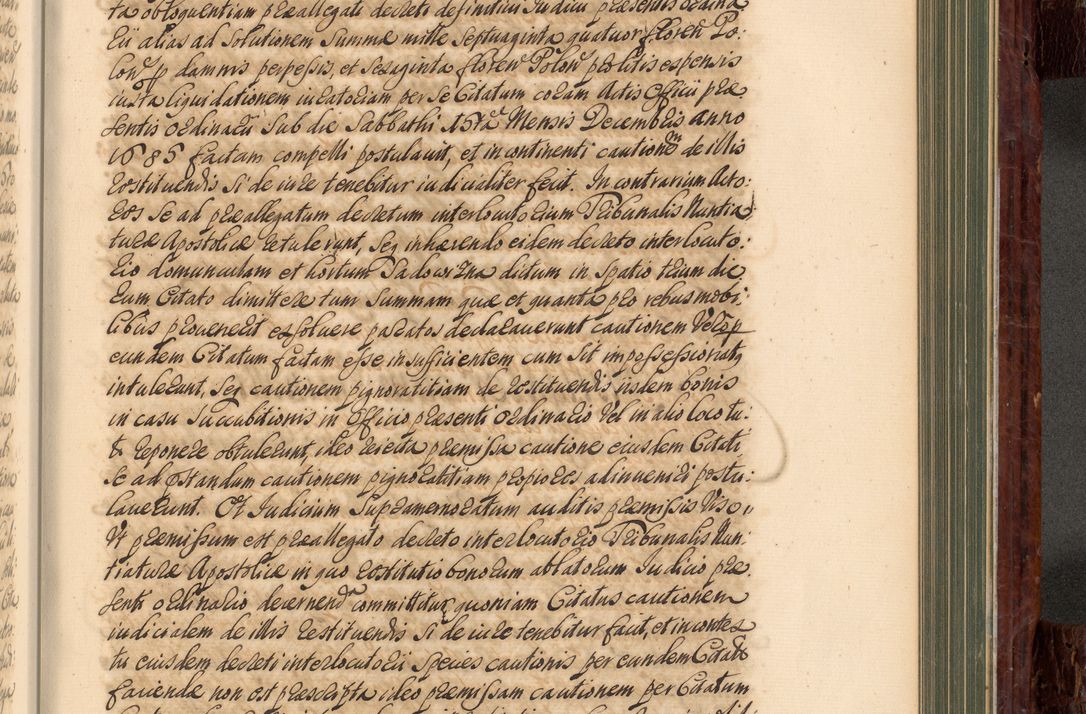 ta obloquentiam præallegati decreti definitivi Iudicii præsentis ordina
rii alias ad solutionem summæ mille septuaginta quatuor floren Po:
lon p damnis perpessis, et sexaginta floren Polon pro litis expensis
iuxta liquidationem iuratoriam per se Citatum coram Actis Officii præ
sentis ordinarii sub die Sabbathi 15ta Mensis Decembris anno
1685 factam compelli postulavit, et in continenti cautionem de illis
restituendis si de iure tenebitur iudicialiter fecit. In contrarium Acto:
res se ad præallegatum decretum interlocutorium Tribunalis Nuntia
turæ Apostolicæ retulerunt, seq inhærendo eidem decreto interlocuto:
rio domunculam et hortum Sadowizna dictum in spatio trium die
rum Citato dimittere tum summam quæ et quanta pro rebus mobi
libus provenerit exsolvere paratos declaraverunt cautionem vero p
eundem Citatum factam esse insufficientem cum sit impossessionatq
intulerunt, seq cautionem pignoratitiam de restituendis iisdem bonis
in casu succubitionis in Officio præsenti ordinario vel in alio loco tu:
to reponere obtulerunt, ideo reiecta præmissa cautione eiusdem Citati
se ad præstandum cautionem pignoratitiam propiores adinveniri postu:
laverunt. Et Iudicium supramemoratum auditis præmissis
Ut præmissum est præallegato decreto interlocutorio Tribunalis Nun
tiaturæ Apostolicæ in quo restitutio bonorum ablatorum Iudicio præ
senti ordinario decernend committitur, quoniam Citatus cautionem
iudicialem de illis restituendis si de iure tenebitur facit, et in contex
tu eiusdem decreti interlocutorii species cautionis per eundem Citatu
faciendæ non est præscripta ideo præmissam cautionem per Citatum